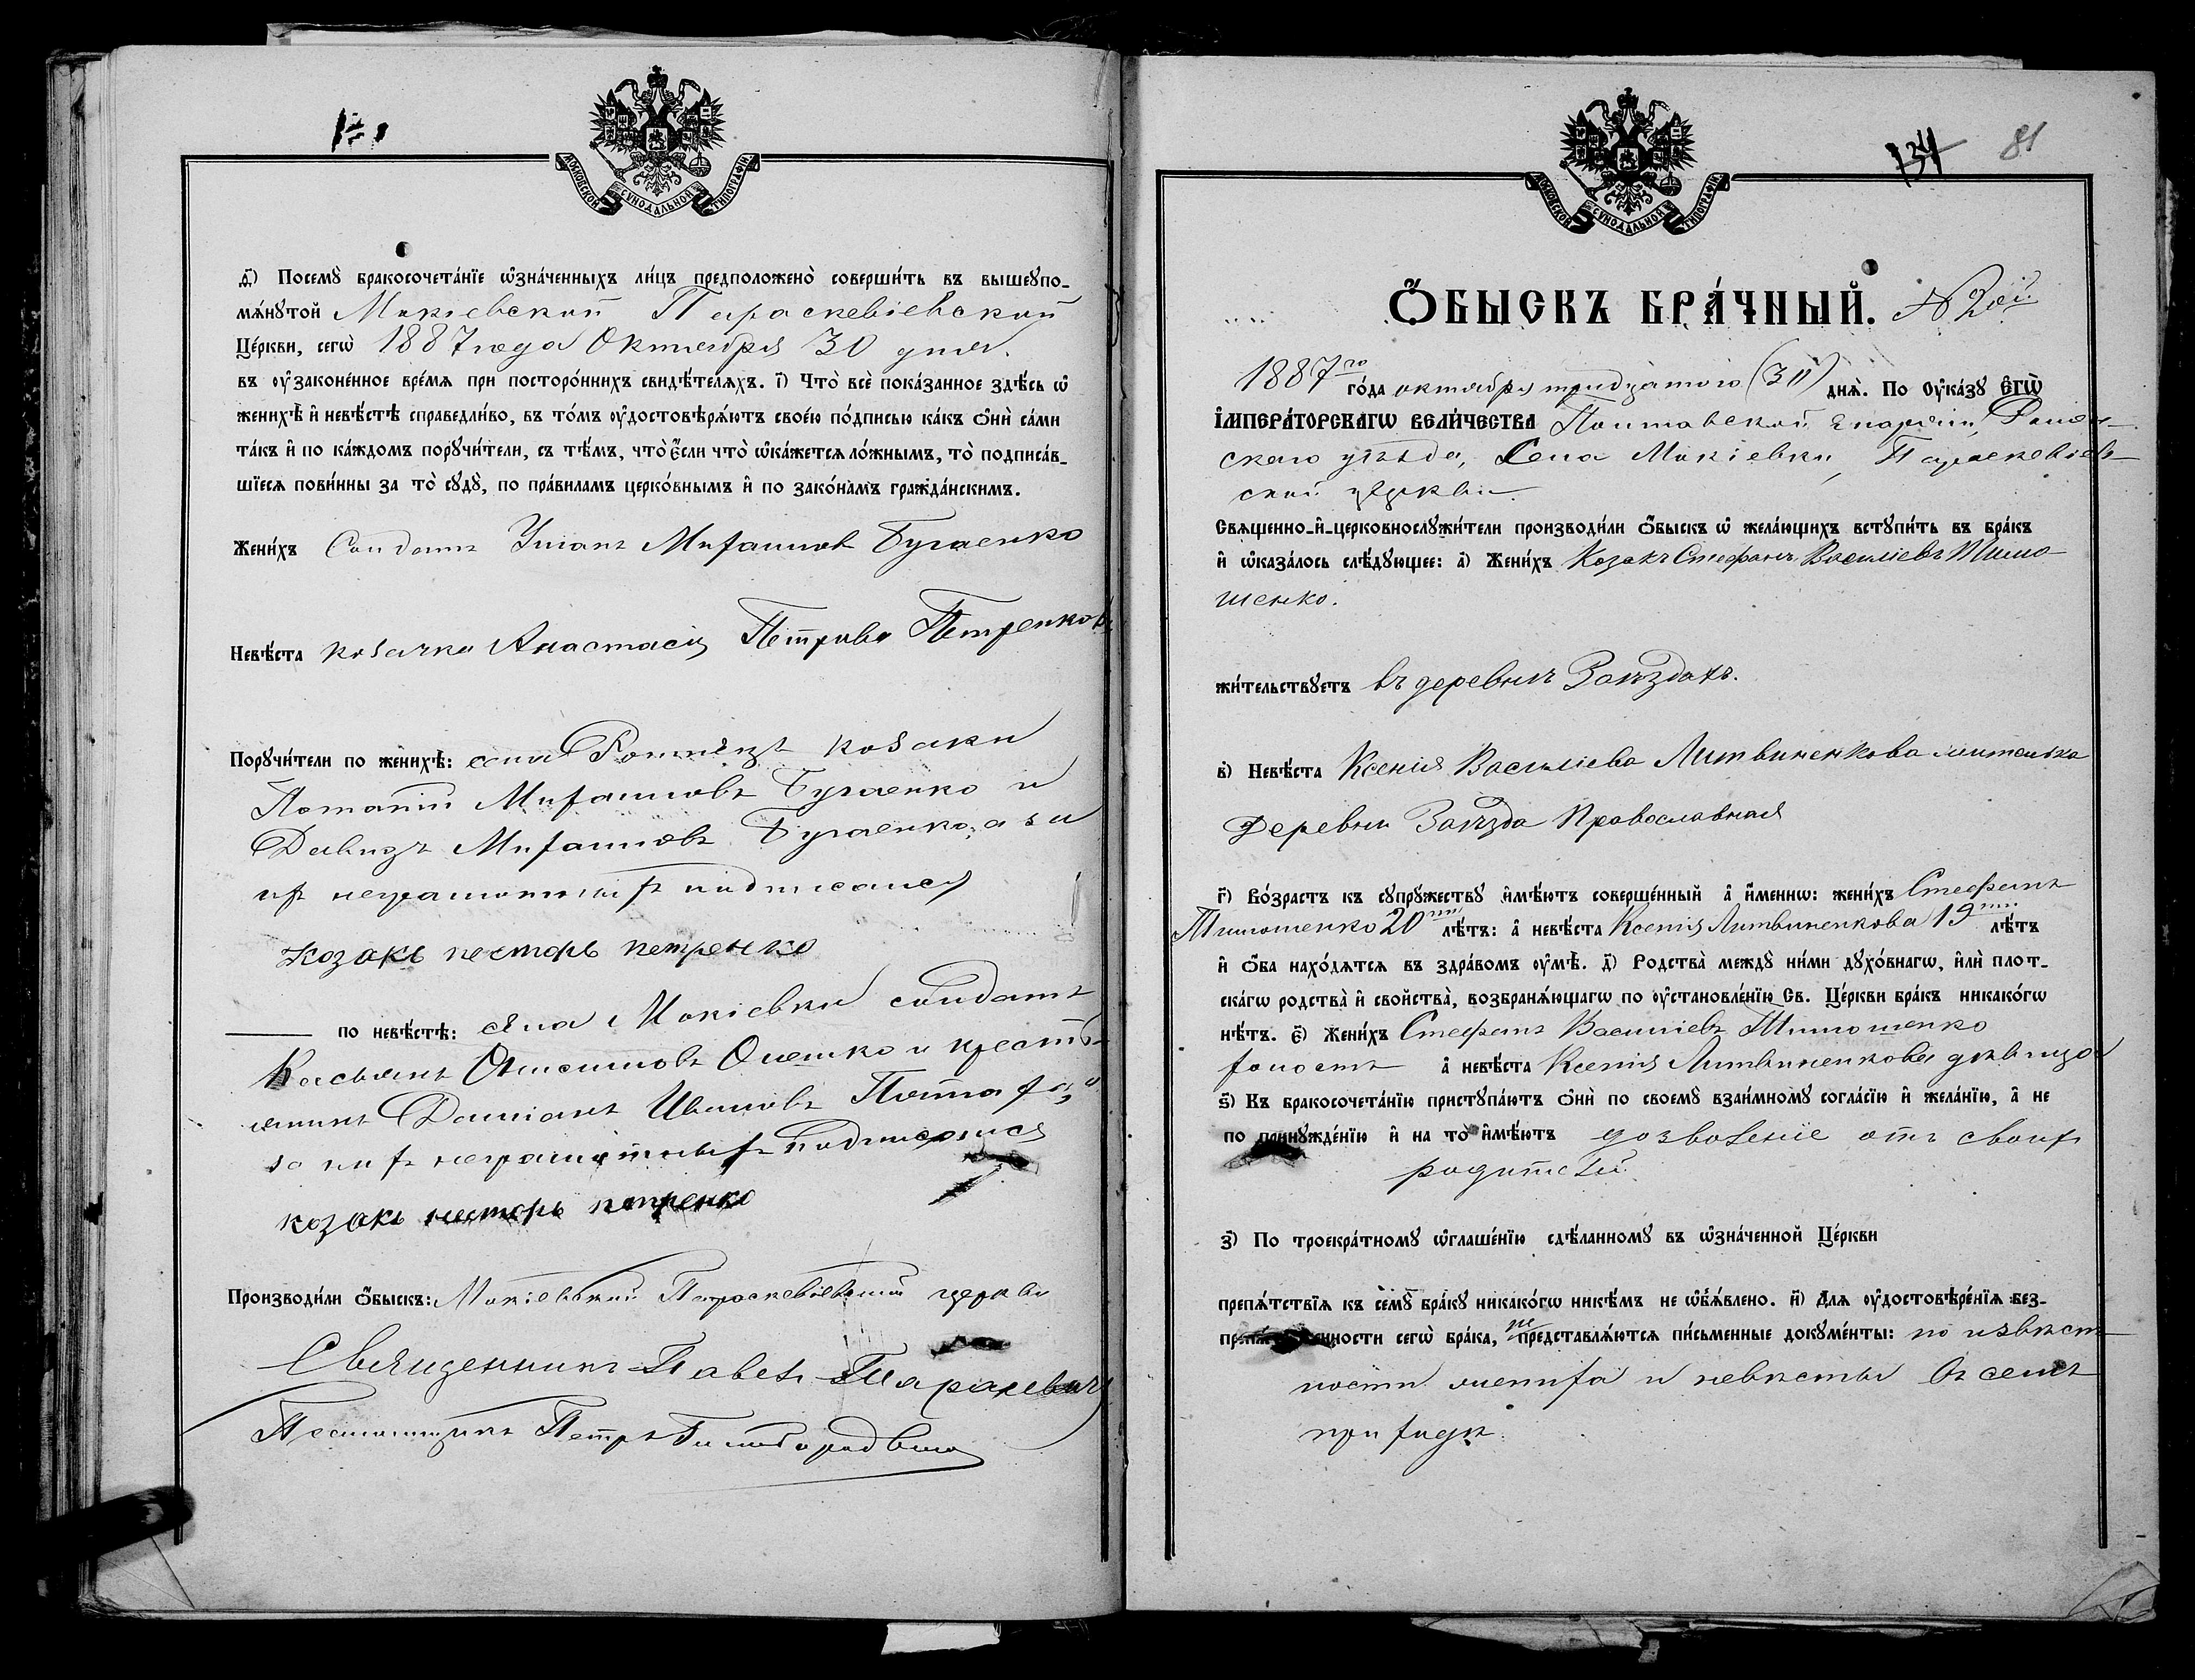 МОСКОВСКОЙ СУНОДАЛЬНОЙ ТИПОГРАФІИ
д҃) Посемꙋ̀ бракосочета́нїе ѡ҆зна́ченныхъ ли́цъ предположено̀ соверши́ть въ вышеꙋпо-
мѧ́нꙋтой Мокіевской Параскевіевской
Це́ркви, сегѡ̀ 1887 года Октября 30 дня.
въ ᲂу҆законе́нное вре́мѧ при посторо́ннихъ свидѣ́телѧхъ. і҃) Что̀ всѐ пока́занное здѣ́сь ѡ҆
женихѣ̀ и҆ невѣ́стѣ справедли́во, въ то́мъ ᲂу҆достовѣрѧ́ютъ свое́ю по́дписью ка́къ ѻ҆нѝ са́ми
та́къ и҆ по ка́ждомъ порꙋчи́тели, съ тѣ́мъ, что̀ є҆́сли что̀ ѡ҆ка́жетсѧ ло́жнымъ, то̀ подписа́в-
шїесѧ пови́нны за то̀ сꙋдꙋ̀, по пра́виламъ церко́внымъ и҆ по зако́намъ гражда́нскимъ.
Жени́хъ Солдатъ Уліанъ Михаиловъ Бугаенко
Невѣ́ста козачка Анастасія Петрова Петренкова
Порꙋчи́тели по женихѣ̀: села козаки
Потапій Михаиловъ Бугаенко и
Давидъ Михаиловъ Бугаенко, а за
ихъ неграмотныхъ подписался
козакъ несторъ петренко
по невѣ́стѣ: села Мокіевки солдатъ
Касьянъ Олешко и крестья-
нинъ Даміанъ Ивановъ
за нихъ неграмотныхъ подписался
козакъ несторъ петренко
Производи́ли ѻ҆́быскъ: Мокіевской Параскевіевской церкви
Священникъ Павелъ
Псаломщикъ Петръ
81
134
МОСКОВСКОЙ СУНОДАЛЬНОЙ ТИПОГРАФІИ
Ѻ҆́БЫСКЪ БРА́ЧНЫЙ. № 2ой
1887го го́да октября тридцатого (30) днѧ̀. По Оу҆ка́зꙋ Є҆гѡ̀
І҆мпера́торскагѡ вели́чества Полтавской Епархіи, Лохви-
скаго уѣзда, Села Мокіевки, Параскевіев-
ской церкви
Свѧще́нно-и҆-церковнослꙋжи́тели производи́ли ѻ҆́быскъ ѡ҆ жела́ющихъ встꙋпи́ть въ бра́къ
и҆ ѡ҆каза́лось слѣ́дꙋющее: а҃) Жени́хъ Козакъ Стефанъ Василіевъ Тимо
шенко.
жи́тельствꙋетъ въ деревнѣ Заѣздахъ.
в҃) Невѣ́ста Ксенія Василіева Литвиненкова жителька
Деревни Заѣзда Православная
г҃) Во́зрастъ къ сꙋпрꙋ́жествꙋ и҆мѣ́ютъ соверше́нный а҆ и҆́меннѡ: жени́хъ Стефанъ
Тимошенко 20ти лѣ́тъ: а҆ невѣ́ста Ксенія Литвиненкова 19ти лѣ́тъ
и҆ ѻ҆́ба нахо́дѧтсѧ въ здра́вомъ ᲂу҆мѣ̀. д҃) Родства̀ междꙋ̀ ни́ми дꙋхо́внагѡ, и҆лѝ плот-
ска́гѡ родства̀ и҆ сво́йства̀, возбранѧ́ющагѡ по ᲂу҆становле́нїю Св. Це́ркви бра́къ никако́гѡ
нѣ́тъ. є҃) Жени́хъ Стефанъ Василіевъ Тимошенко
холостъ а҆ невѣ́ста Ксенія Литвиненкова дѣвица
ѕ҃) Къ бракосочета́нїю пристꙋпа́ютъ ѻ҆нѝ по своемꙋ̀ взаи́мномꙋ согла́сїю и҆ жела́нїю, а҆ не
по принꙋжде́нїю и҆ на то̀ и҆мѣ́ютъ дозволеніе отъ своихъ
родителей.
з҃) По троекра́тномꙋ ѡ҆глаше́нїю сдѣ́ланномꙋ въ ѡ҆зна́ченной Це́ркви
препѧ́тствїѧ къ семꙋ̀ бра́кꙋ никако́гѡ никѣ́мъ не ѡ҆б̾ѧ́влено. и҃) Длѧ ᲂу҆достовѣре́нїѧ без-
препѧ́тственности сегѡ̀ бра́ка, не представлѧ́ютсѧ пи́сьменные докꙋме́нты: по извѣст-
ности жениха и невѣсты въ семъ
приходѣ.